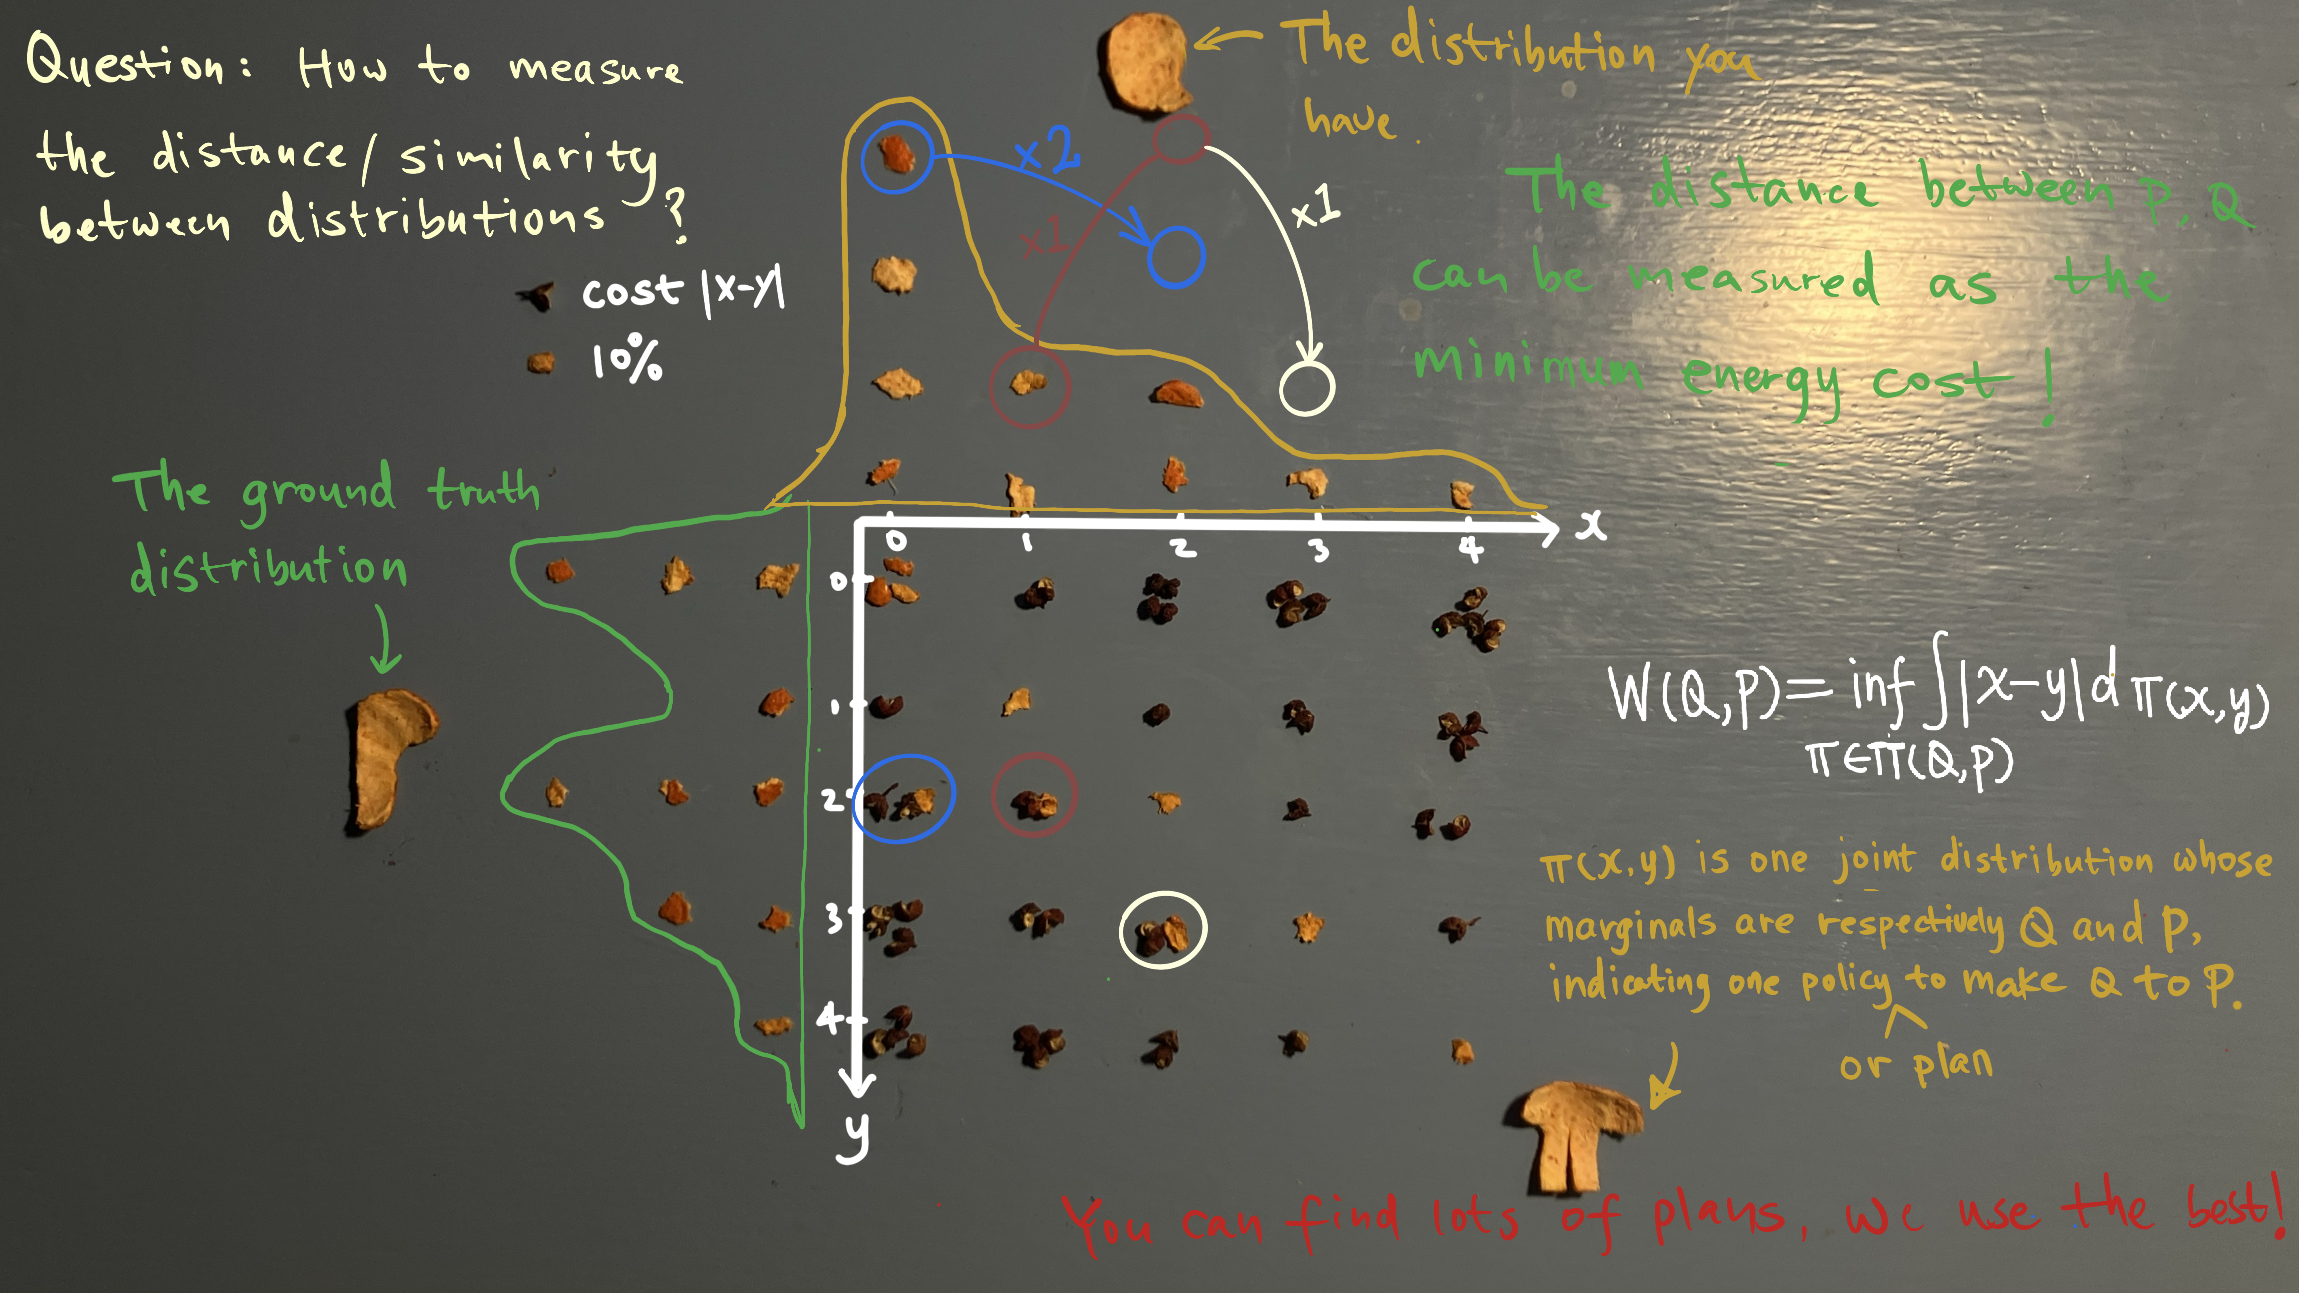 Question: How to measure
the distance/similarity
between distributions?
cost |x-y|
10%
The distribution you
have.
x2
x1
x1
The distance between P, Q
can be measured as the
minimum energy cost!
The ground truth
distribution
0 1 2 3 4 x
0
1
2
3
4
y
W(Q,P)= inf ∫|x-y|dπ(x,y)
π∈Π(Q,P)
π(x,y) is one joint distribution whose
marginals are respectively Q and P,
indicating one policy to make Q to P.
or plan
You can find lots of plans, we use the best!